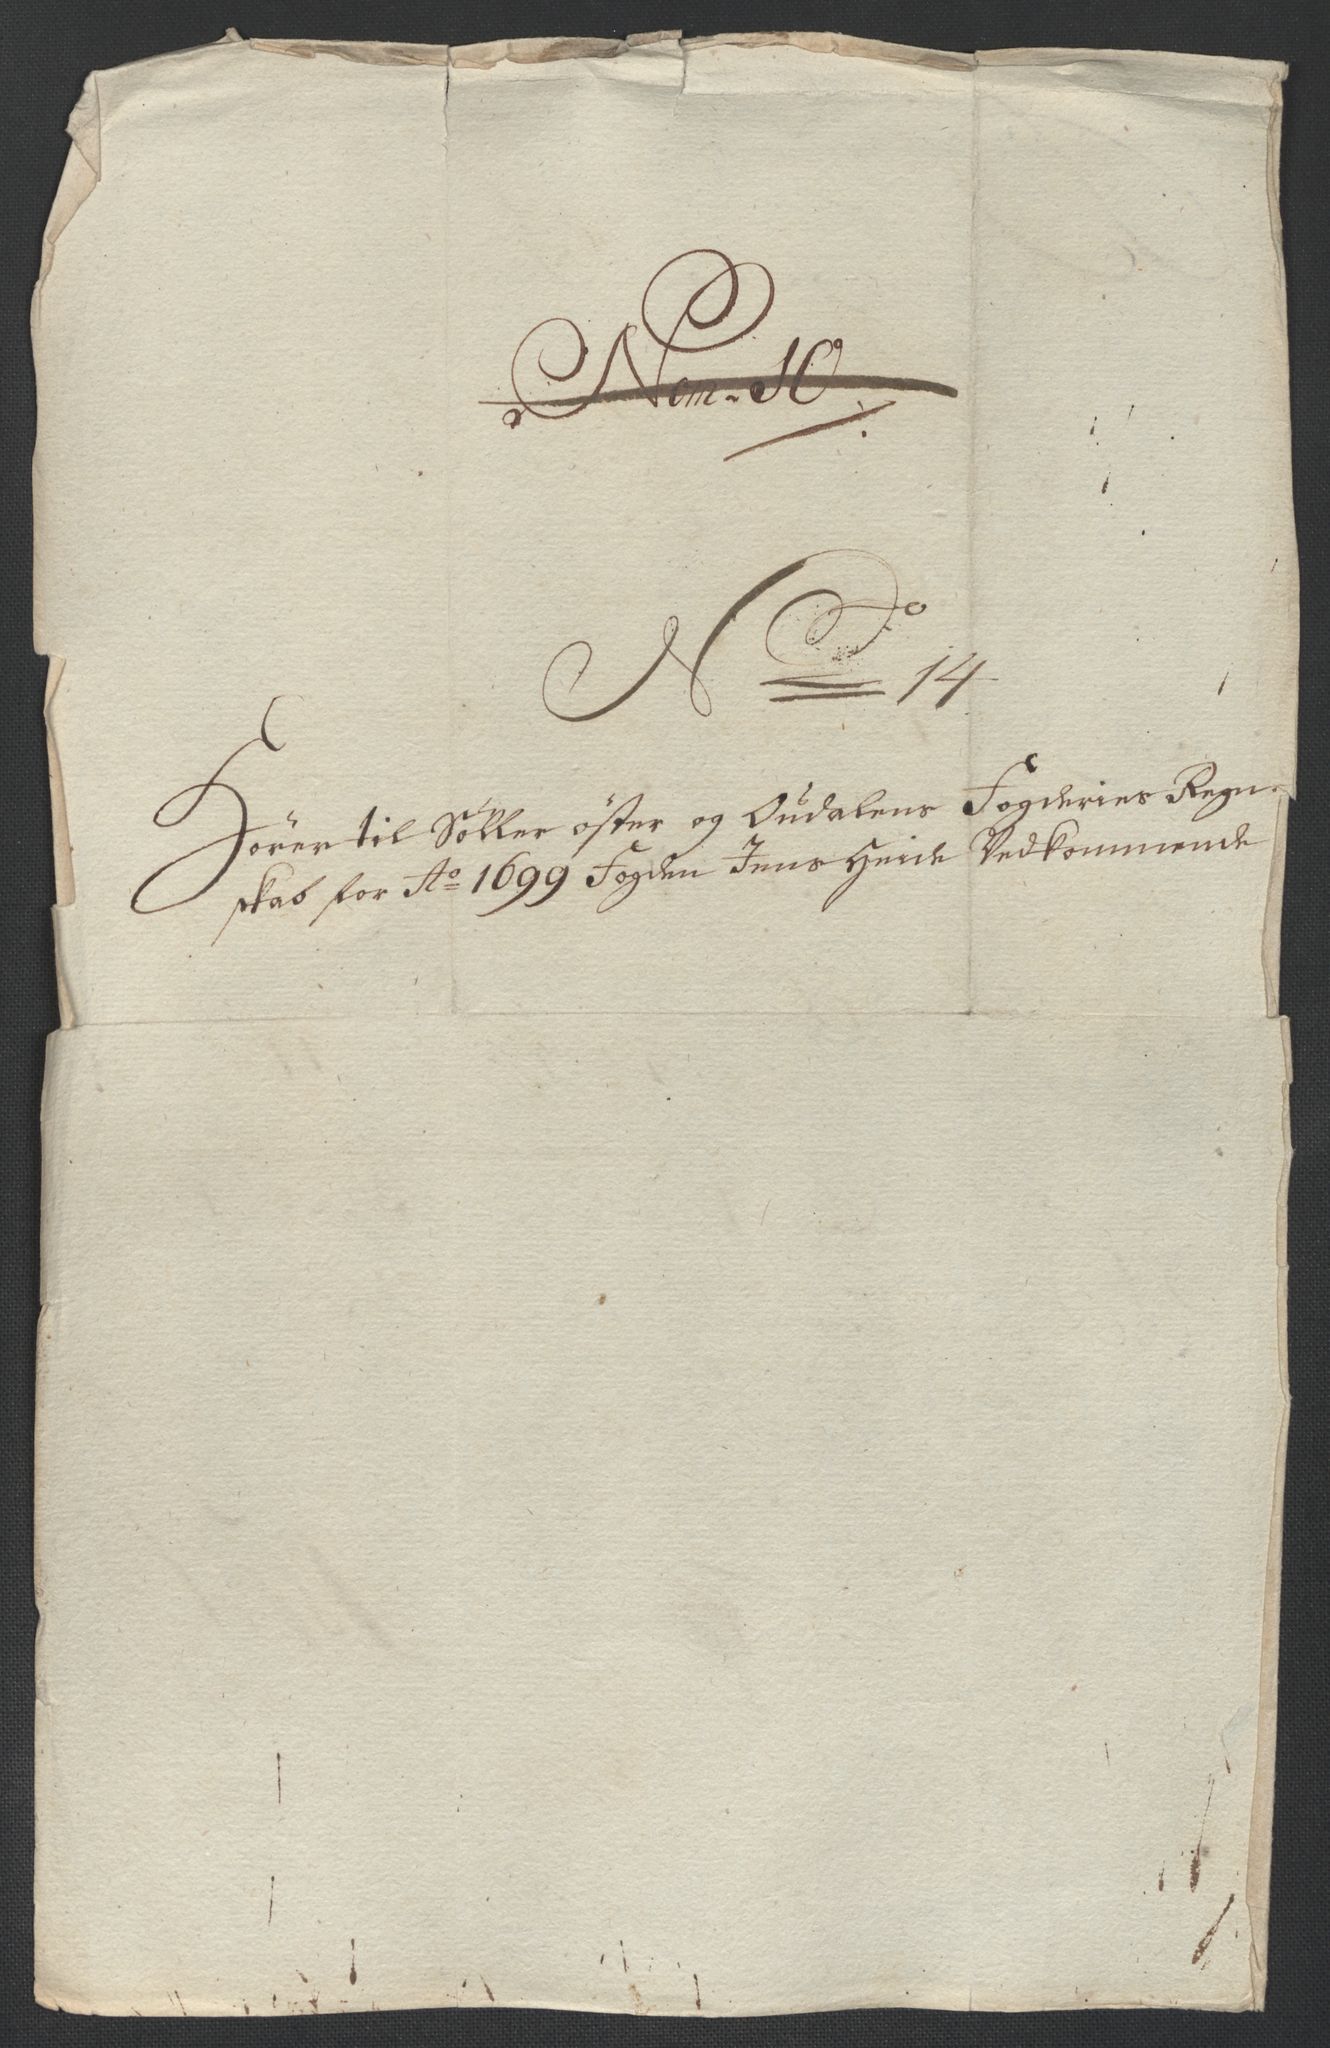 Nom. 10
No 14
Hörer til Soller öster og Oudalens Fogderies Regn-
skab for Ao 1699 Fogden Jens Heide Vedkommende